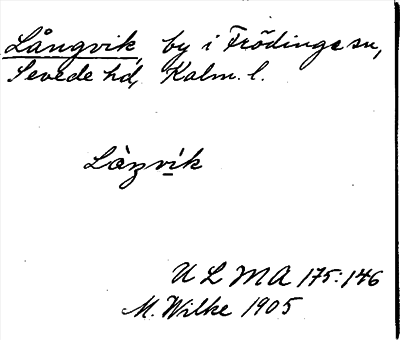 Långvik, by i Frödinge sn,
Sevede hd, Kalm. l.
ULMA 175:146
M. Wilke 1905